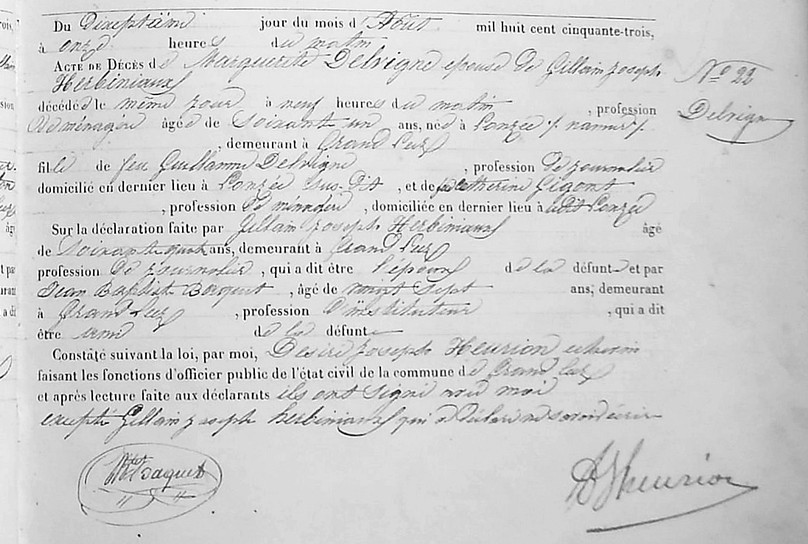 Du Dixseptième jour du mois d'Août mil huit cent cinquante-trois,
à onze heures du matin
ACTE DE DÉCÈS de Marguerite Delvigne epouse de Gillain joseph
Herbiniaux
décédée le même jour à neuf heures du matin , profession
de ménagère âgée de soixante un ans, née à Ponzée /. namur /.
, demeurant à Grand Leez
fille de feu Guillaume Delvigne , profession de journalier
domicilié en dernier lieu à Ponzée sus-dit , et de Catherine Gigont
, profession de ménagère , domiciliée en dernier lieu à dit Ponzée
Sur la déclaration faite par Gillain joseph Herbiniaux âgé
de soixante quatre ans, demeurant à Grand Leez
profession de journalier , qui a dit être l'époux de la défunte et par
Jean Baptiste Bacquet , âgé de vingt sept ans, demeurant
à Grand Leez , profession D'instituteur , qui a dit
être ami de la défunte
Constaté suivant la loi, par moi, Desiré joseph Heurion echevin
faisant les fonctions d'officier public de l'état civil de la commune de Grand Leez
et après lecture faite aux déclarants ils ont signé avec moi
excepté Gillain joseph herbiniaux qui a déclaré ne savoir écrire
N° 22
Delvigne
Bacquet
DJHeurion